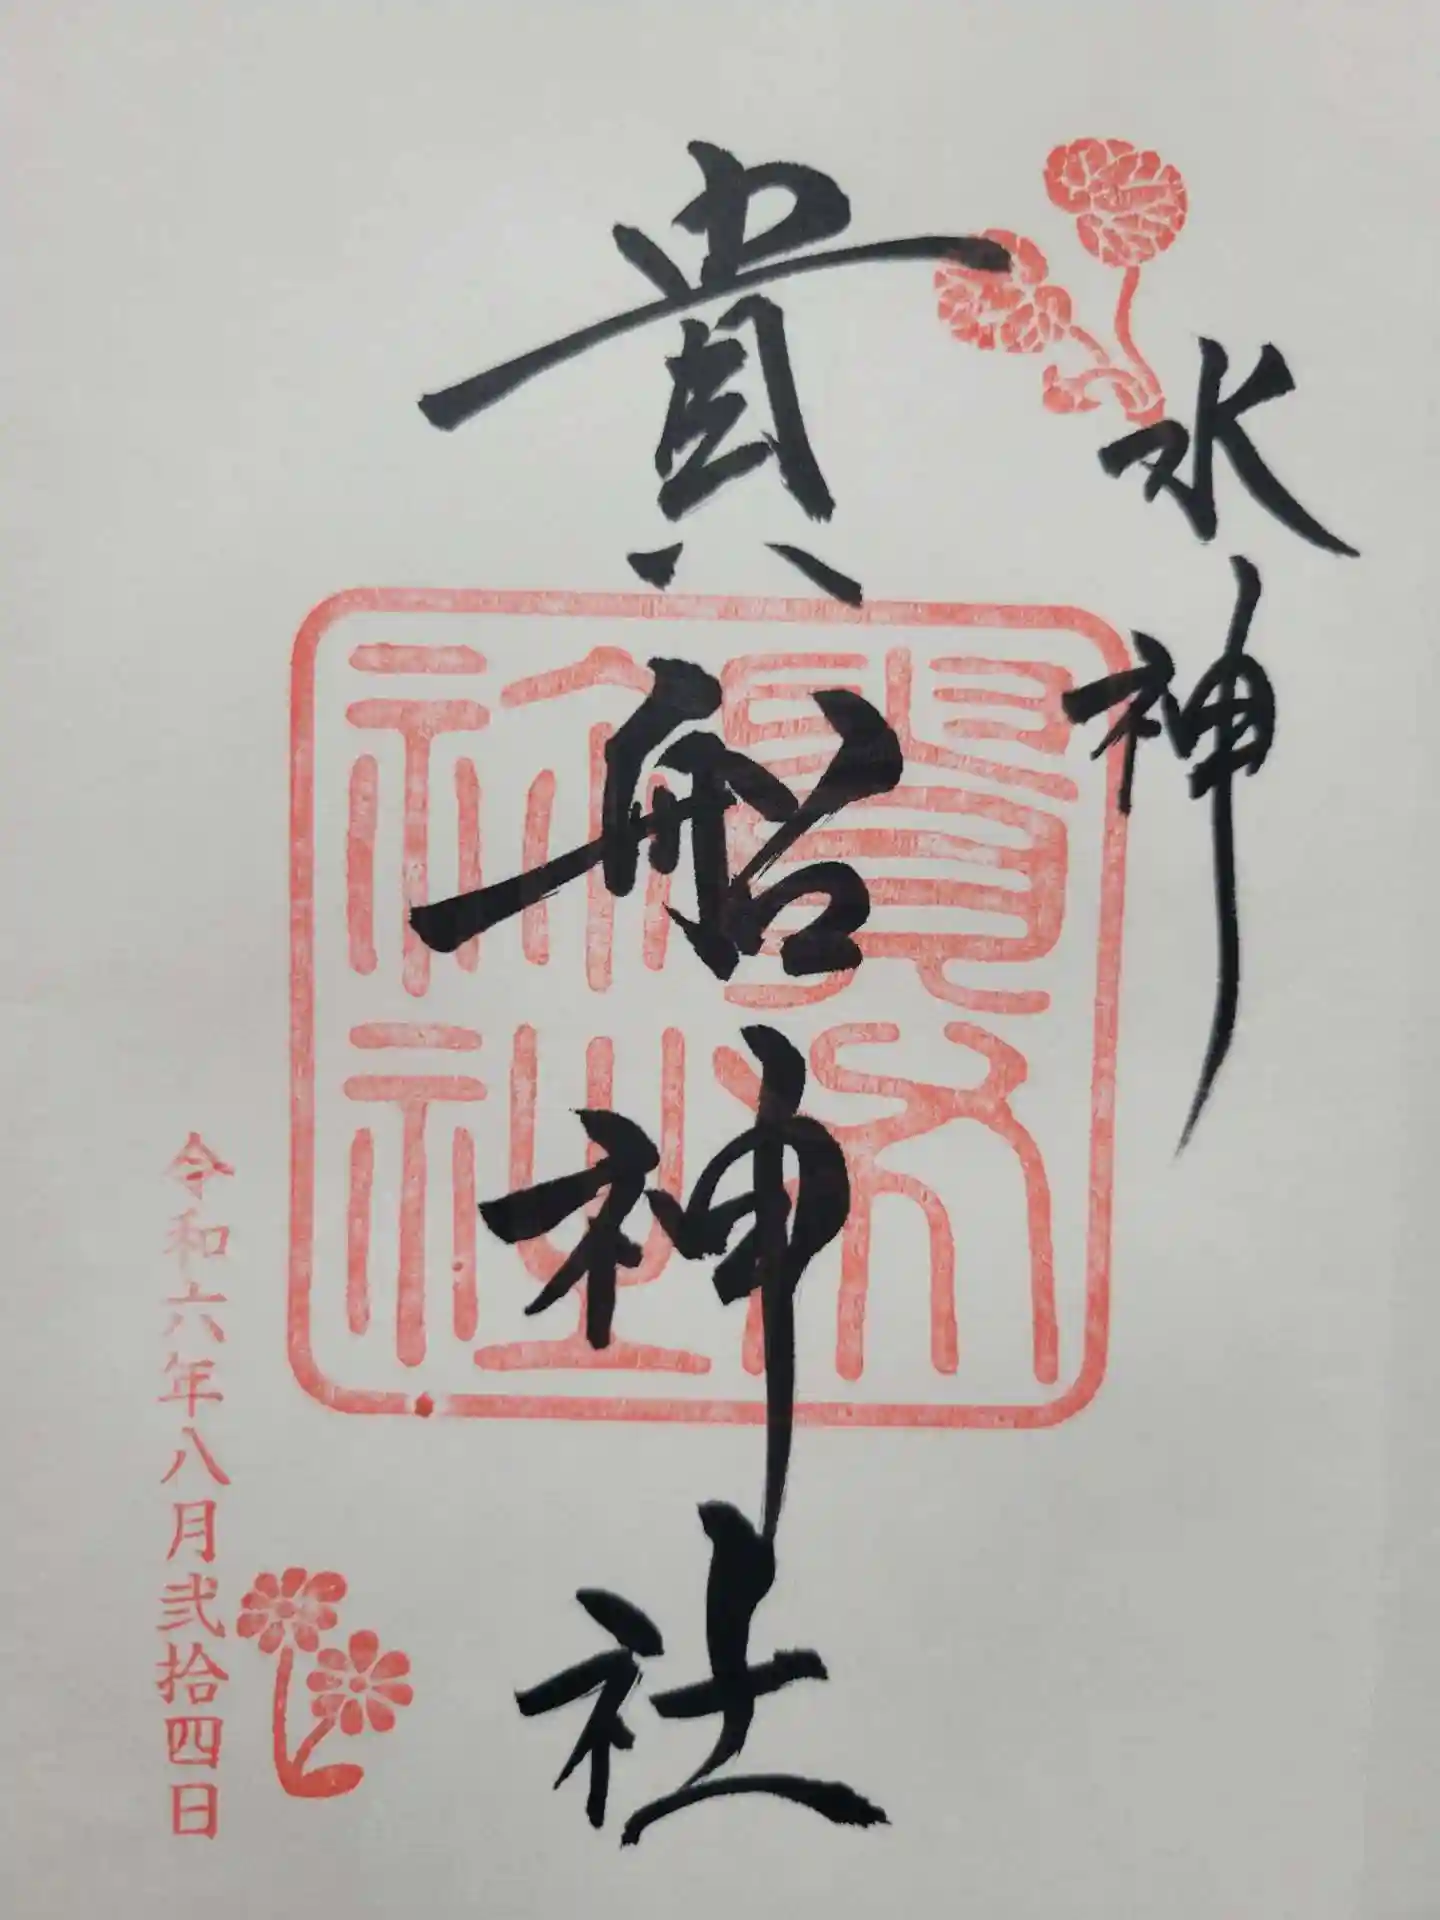 水神
貴船神社
貴船神社
令和六年八月弐拾四日